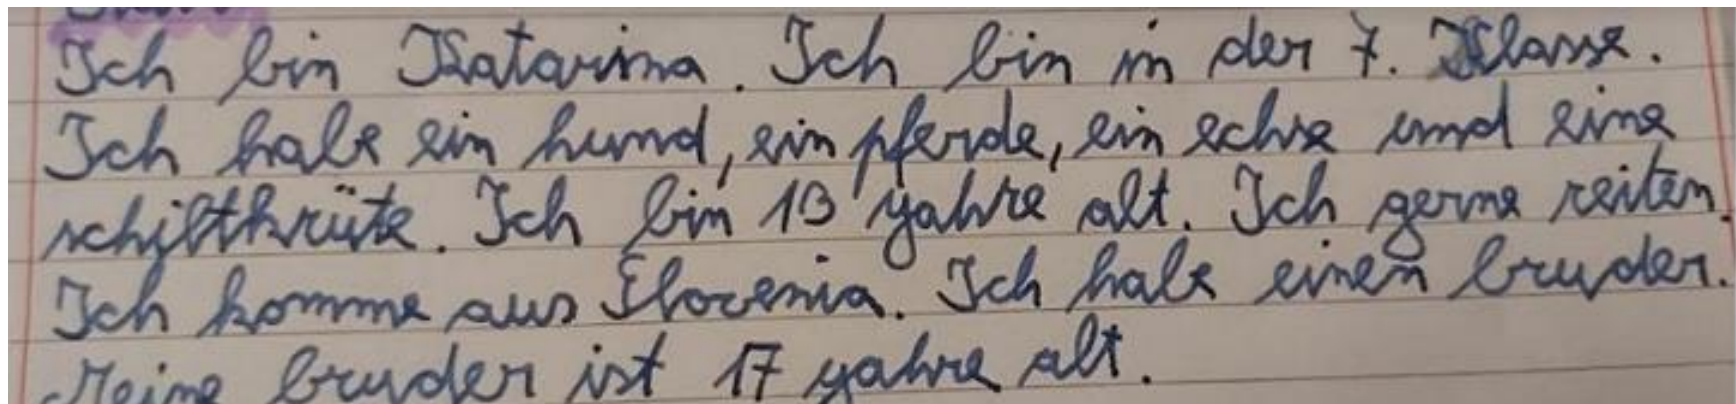 Ich bin Katarina. Ich bin in der 7. Klasse.
Ich habe ein hund, ein pferde, ein echse und eine
schiltkrüte. Ich bin 13 yahre alt. Ich gerne reiten.
Ich komme aus Slovenia. Ich habe einen bruder.
Meine bruder ist 17 yahre alt.